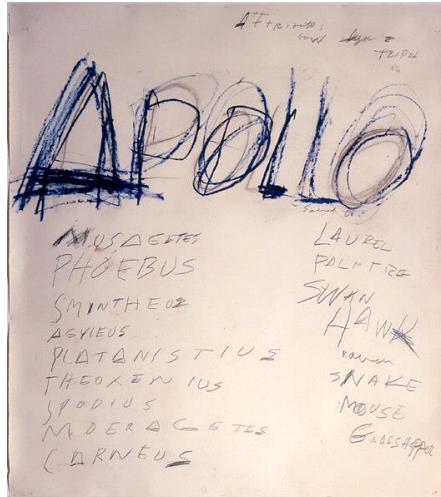 ATTRIBUTES:
BOW
APOLLO
SACRED TO:
MUSAGETES
PHOEBUS
SMINTHEUS
AGYIEUS
PLATANISTIUS
THEOXENIUS
SPODIUS
MOERAGETES
CARNEUS
LAUREL
PALM TREE
SWAN
HAWK
RAVEN
SNAKE
MOUSE
GRASSHOPPER